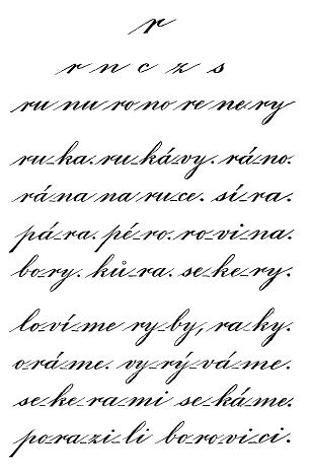 r
r n c z s
ru nu ro no re ne ry
ru-ka. ru-ká-vy. rá-no.
rá-na na ru-ce. sí-ra.
pá-ra. pé-ro. ro-vi-na.
bo-ry. ků-ra. se-ke-ry.
lo-ví-me ry-by, ra-ky.
o-rá-me. vy-rý-vá-me.
se-ke-ra-mi se-ká-me.
po-ra-zi-li bo-ro-vi-ci.